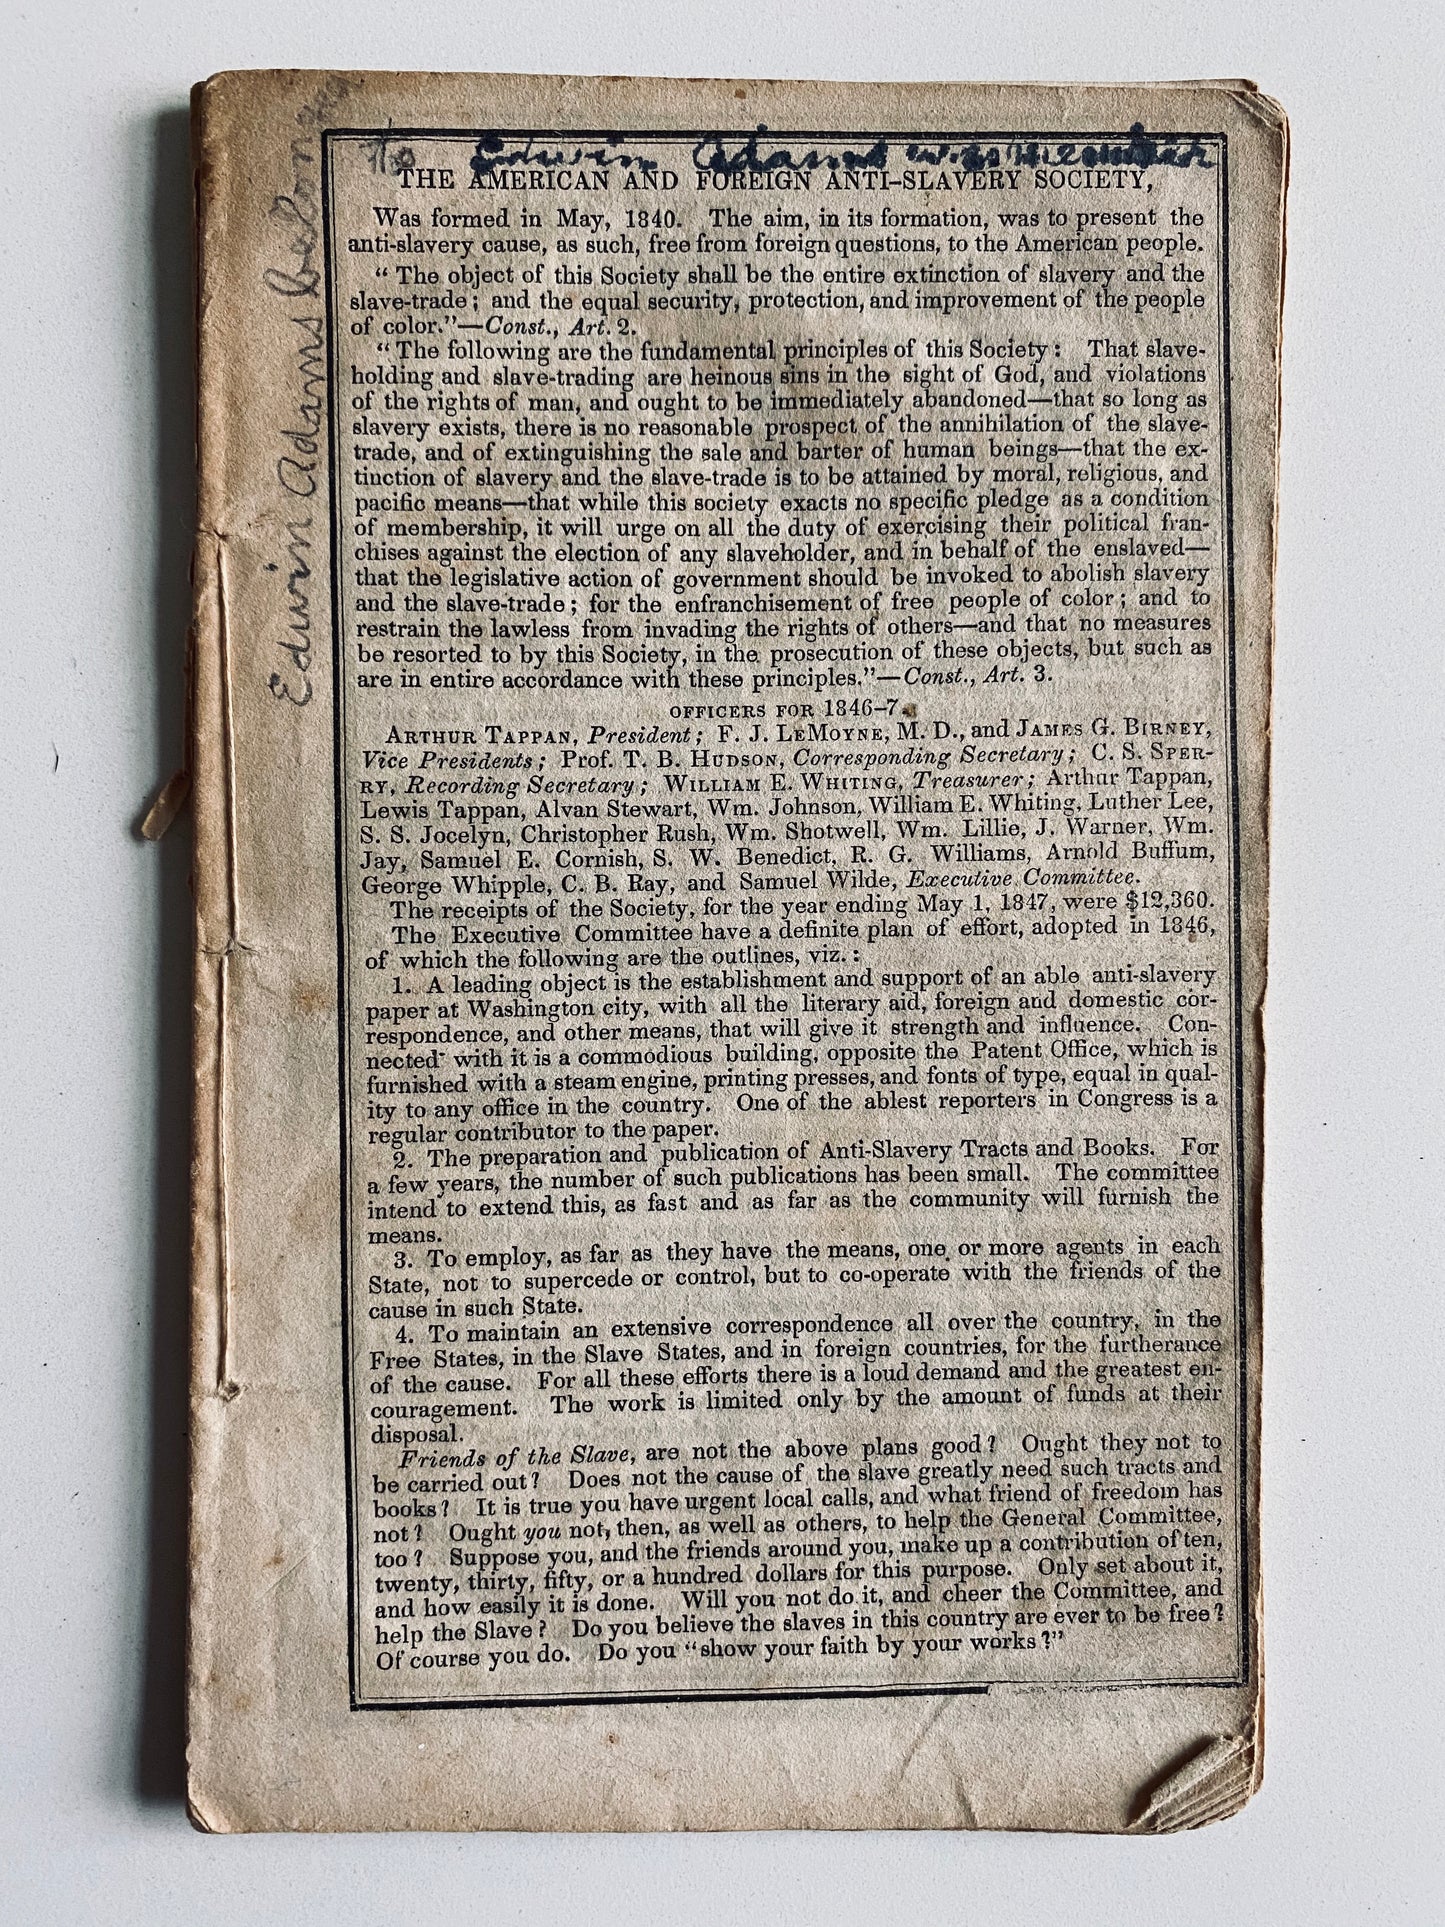 Edwin Adams
THE AMERICAN AND FOREIGN ANTI-SLAVERY SOCIETY,
Was formed in May, 1840. The aim, in its formation, was to present the
anti-slavery cause, as such, free from foreign questions, to the American people.
“The object of this Society shall be the entire extinction of slavery and the
slave-trade; and the equal security, protection, and improvement of the people
of color.”—Const., Art. 2.
“The following are the fundamental principles of this Society: That slave-
holding and slave-trading are heinous sins in the sight of God, and violations
of the rights of man, and ought to be immediately abandoned—that so long as
slavery exists, there is no reasonable prospect of the annihilation of the slave-
trade, and of extinguishing the sale and barter of human beings—that the ex-
tinction of slavery and the slave-trade is to be attained by moral, religious, and
pacific means—that while this society exacts no specific pledge as a condition
of membership, it will urge on all the duty of exercising their political fran-
chises against the election of any slaveholder, and in behalf of the enslaved—
that the legislative action of government should be invoked to abolish slavery
and the slave-trade; for the enfranchisement of free people of color; and to
restrain the lawless from invading the rights of others—and that no measures
be resorted to by this Society, in the prosecution of these objects, but such as
are in entire accordance with these principles.”—Const., Art. 3.
OFFICERS FOR 1846-7.
ARTHUR TAPPAN, President; F. J. LEMOYNE, M. D., and JAMES G. BIRNEY,
Vice Presidents; Prof. T. B. HUDSON, Corresponding Secretary; C. S. SPER-
RY, Recording Secretary; WILLIAM E. WHITING, Treasurer; Arthur Tappan,
Lewis Tappan, Alvan Stewart, Wm. Johnson, William E. Whiting, Luther Lee,
S. S. Jocelyn, Christopher Rush, Wm. Shotwell, Wm. Lillie, J. Warner, Wm.
Jay, Samuel E. Cornish, S. W. Benedict, R. G. Williams, Arnold Buffum,
George Whipple, C. B. Ray, and Samuel Wilde, Executive Committee.
The receipts of the Society, for the year ending May 1, 1847, were $12,360.
The Executive Committee have a definite plan of effort, adopted in 1846,
of which the following are the outlines, viz.:
1. A leading object is the establishment and support of an able anti-slavery
paper at Washington city, with all the literary aid, foreign and domestic cor-
respondence, and other means, that will give it strength and influence. Con-
nected with it is a commodious building, opposite the Patent Office, which is
furnished with a steam engine, printing presses, and fonts of type, equal in qual-
ity to any office in the country. One of the ablest reporters in Congress is a
regular contributor to the paper.
2. The preparation and publication of Anti-Slavery Tracts and Books. For
a few years, the number of such publications has been small. The committee
intend to extend this, as fast and as far as the community will furnish the
means.
3. To employ, as far as they have the means, one or more agents in each
State, not to supercede or control, but to co-operate with the friends of the
cause in such State.
4. To maintain an extensive correspondence all over the country, in the
Free States, in the Slave States, and in foreign countries, for the furtherance
of the cause. For all these efforts there is a loud demand and the greatest en-
couragement. The work is limited only by the amount of funds at their
disposal.
Friends of the Slave, are not the above plans good? Ought they not to
be carried out? Does not the cause of the slave greatly need such tracts and
books? It is true you have urgent local calls, and what friend of freedom has
not? Ought you not, then, as well as others, to help the General Committee,
too? Suppose you, and the friends around you, make up a contribution of ten,
twenty, thirty, fifty, or a hundred dollars for this purpose. Only set about it,
and how easily it is done. Will you not do it, and cheer the Committee, and
help the Slave? Do you believe the slaves in this country are ever to be free?
Of course you do. Do you “show your faith by your works?”
Edwin Adams